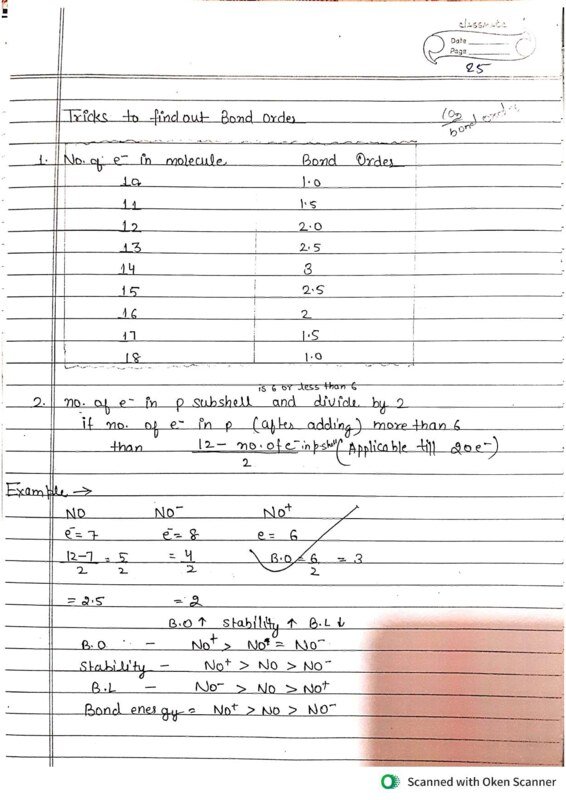 classmate
Date
Page
25
Tricks to find out Bond order
1. No. of e⁻ in molecule Bond Order
10 1.0
11 1.5
12 2.0
13 2.5
14 3
15 2.5
16 2
17 1.5
18 1.0
is 6 or less than 6
2. no. of e⁻ in p subshell and divide by 2
if no. of e⁻ in p (after adding) more than 6
than 12 - no. of e⁻ in p-shell / 2 (Applicable till 20e⁻)
Example →
NO NO⁻ NO⁺
e⁻= 7 e⁻= 8 e = 6
12-7/2 = 5/2 = 4/2 B.O = 6/2 = 3
= 2.5 = 2
B.O ↑ stability ↑ B.L ↓
B.O - NO⁺ > NO = NO⁻
Stability - NO⁺ > NO > NO⁻
B.L - NO⁻ > NO > NO⁺
Bond energy = NO⁺ > NO > NO⁻
Scanned with Oken Scanner